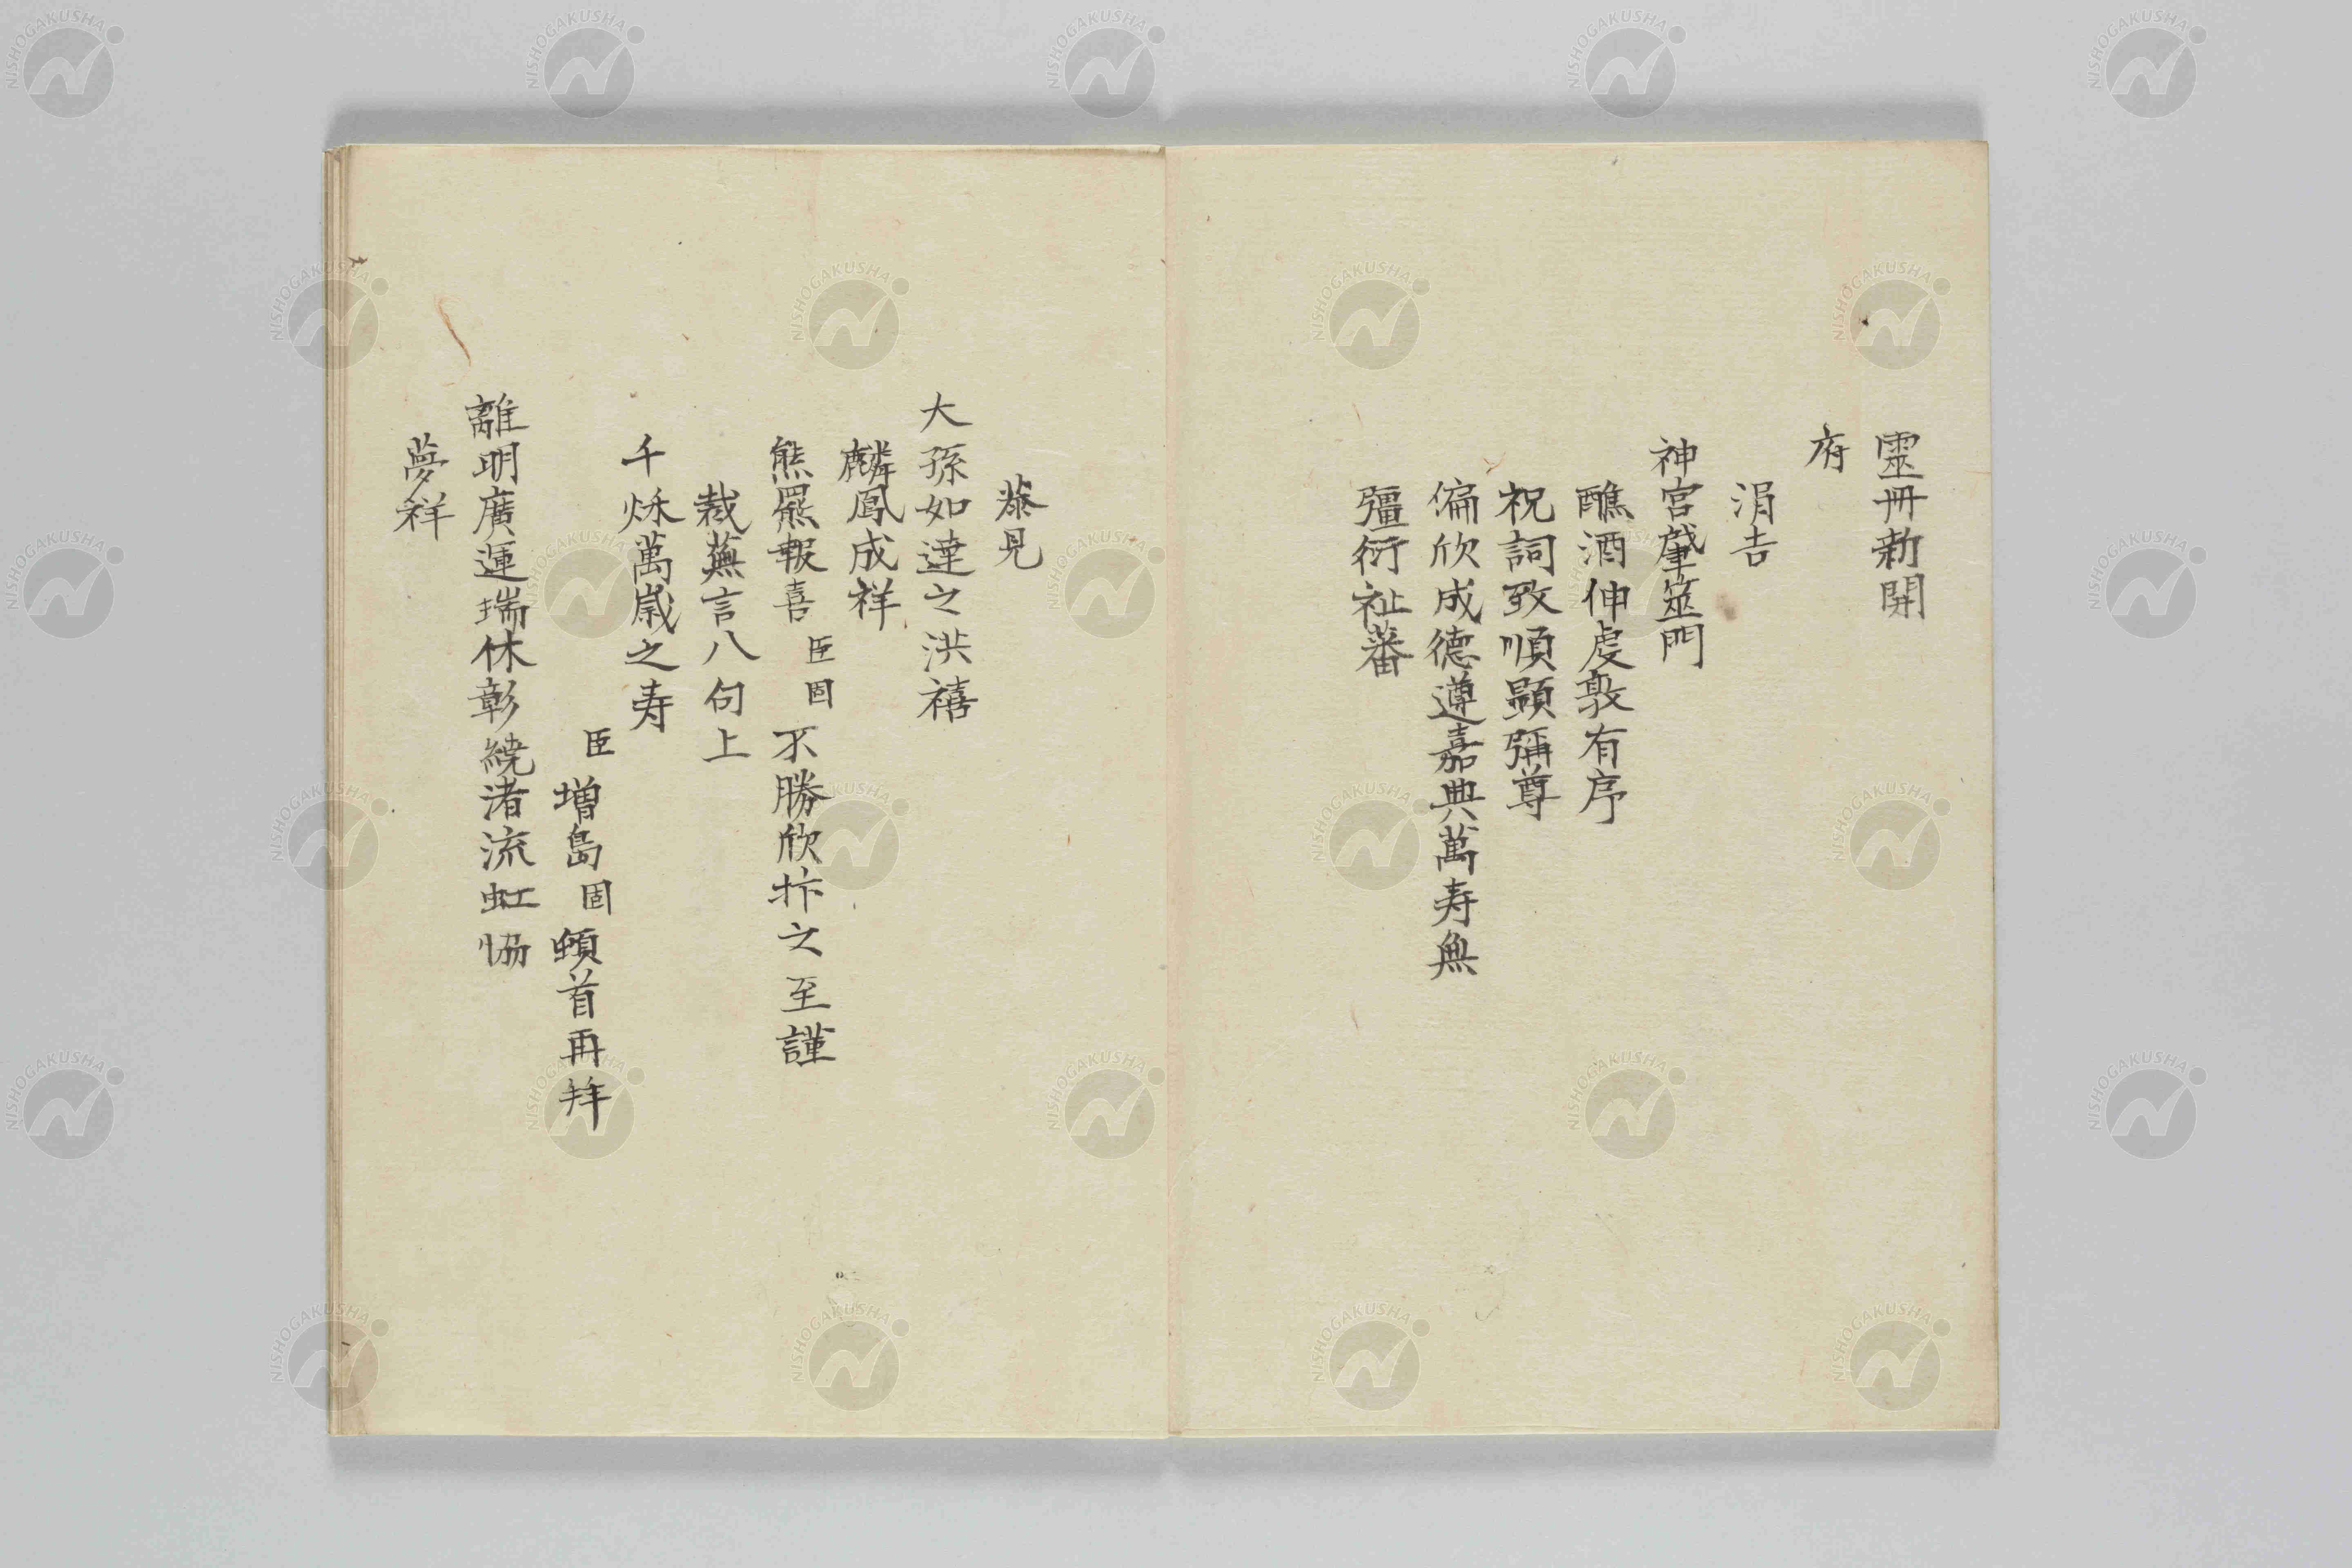 靈冊新開
府
涓吉
神宮肇筮門
醮酒伸虔敦有序
祝詞致順顕彌尊
偏欣成德遵嘉典萬寿無
彊衍祉蕃
恭見
大孫如達之洪禧
麟鳳成祥
熊羆報喜臣固不勝欣抃之至謹
裁蕪言八句上
千秌萬歳之寿
臣増島固頓首再拜
離明廣運瑞休彰繞渚流虹恊
夢祥
NISHOGAKUSHA